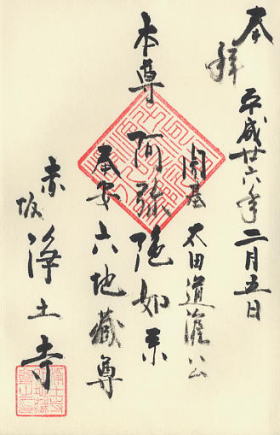 奉拝
平成廿六年二月五日
開基 太田道灌公
本尊 阿弥陀如来
奉安 六地蔵尊
赤坂 浄土寺